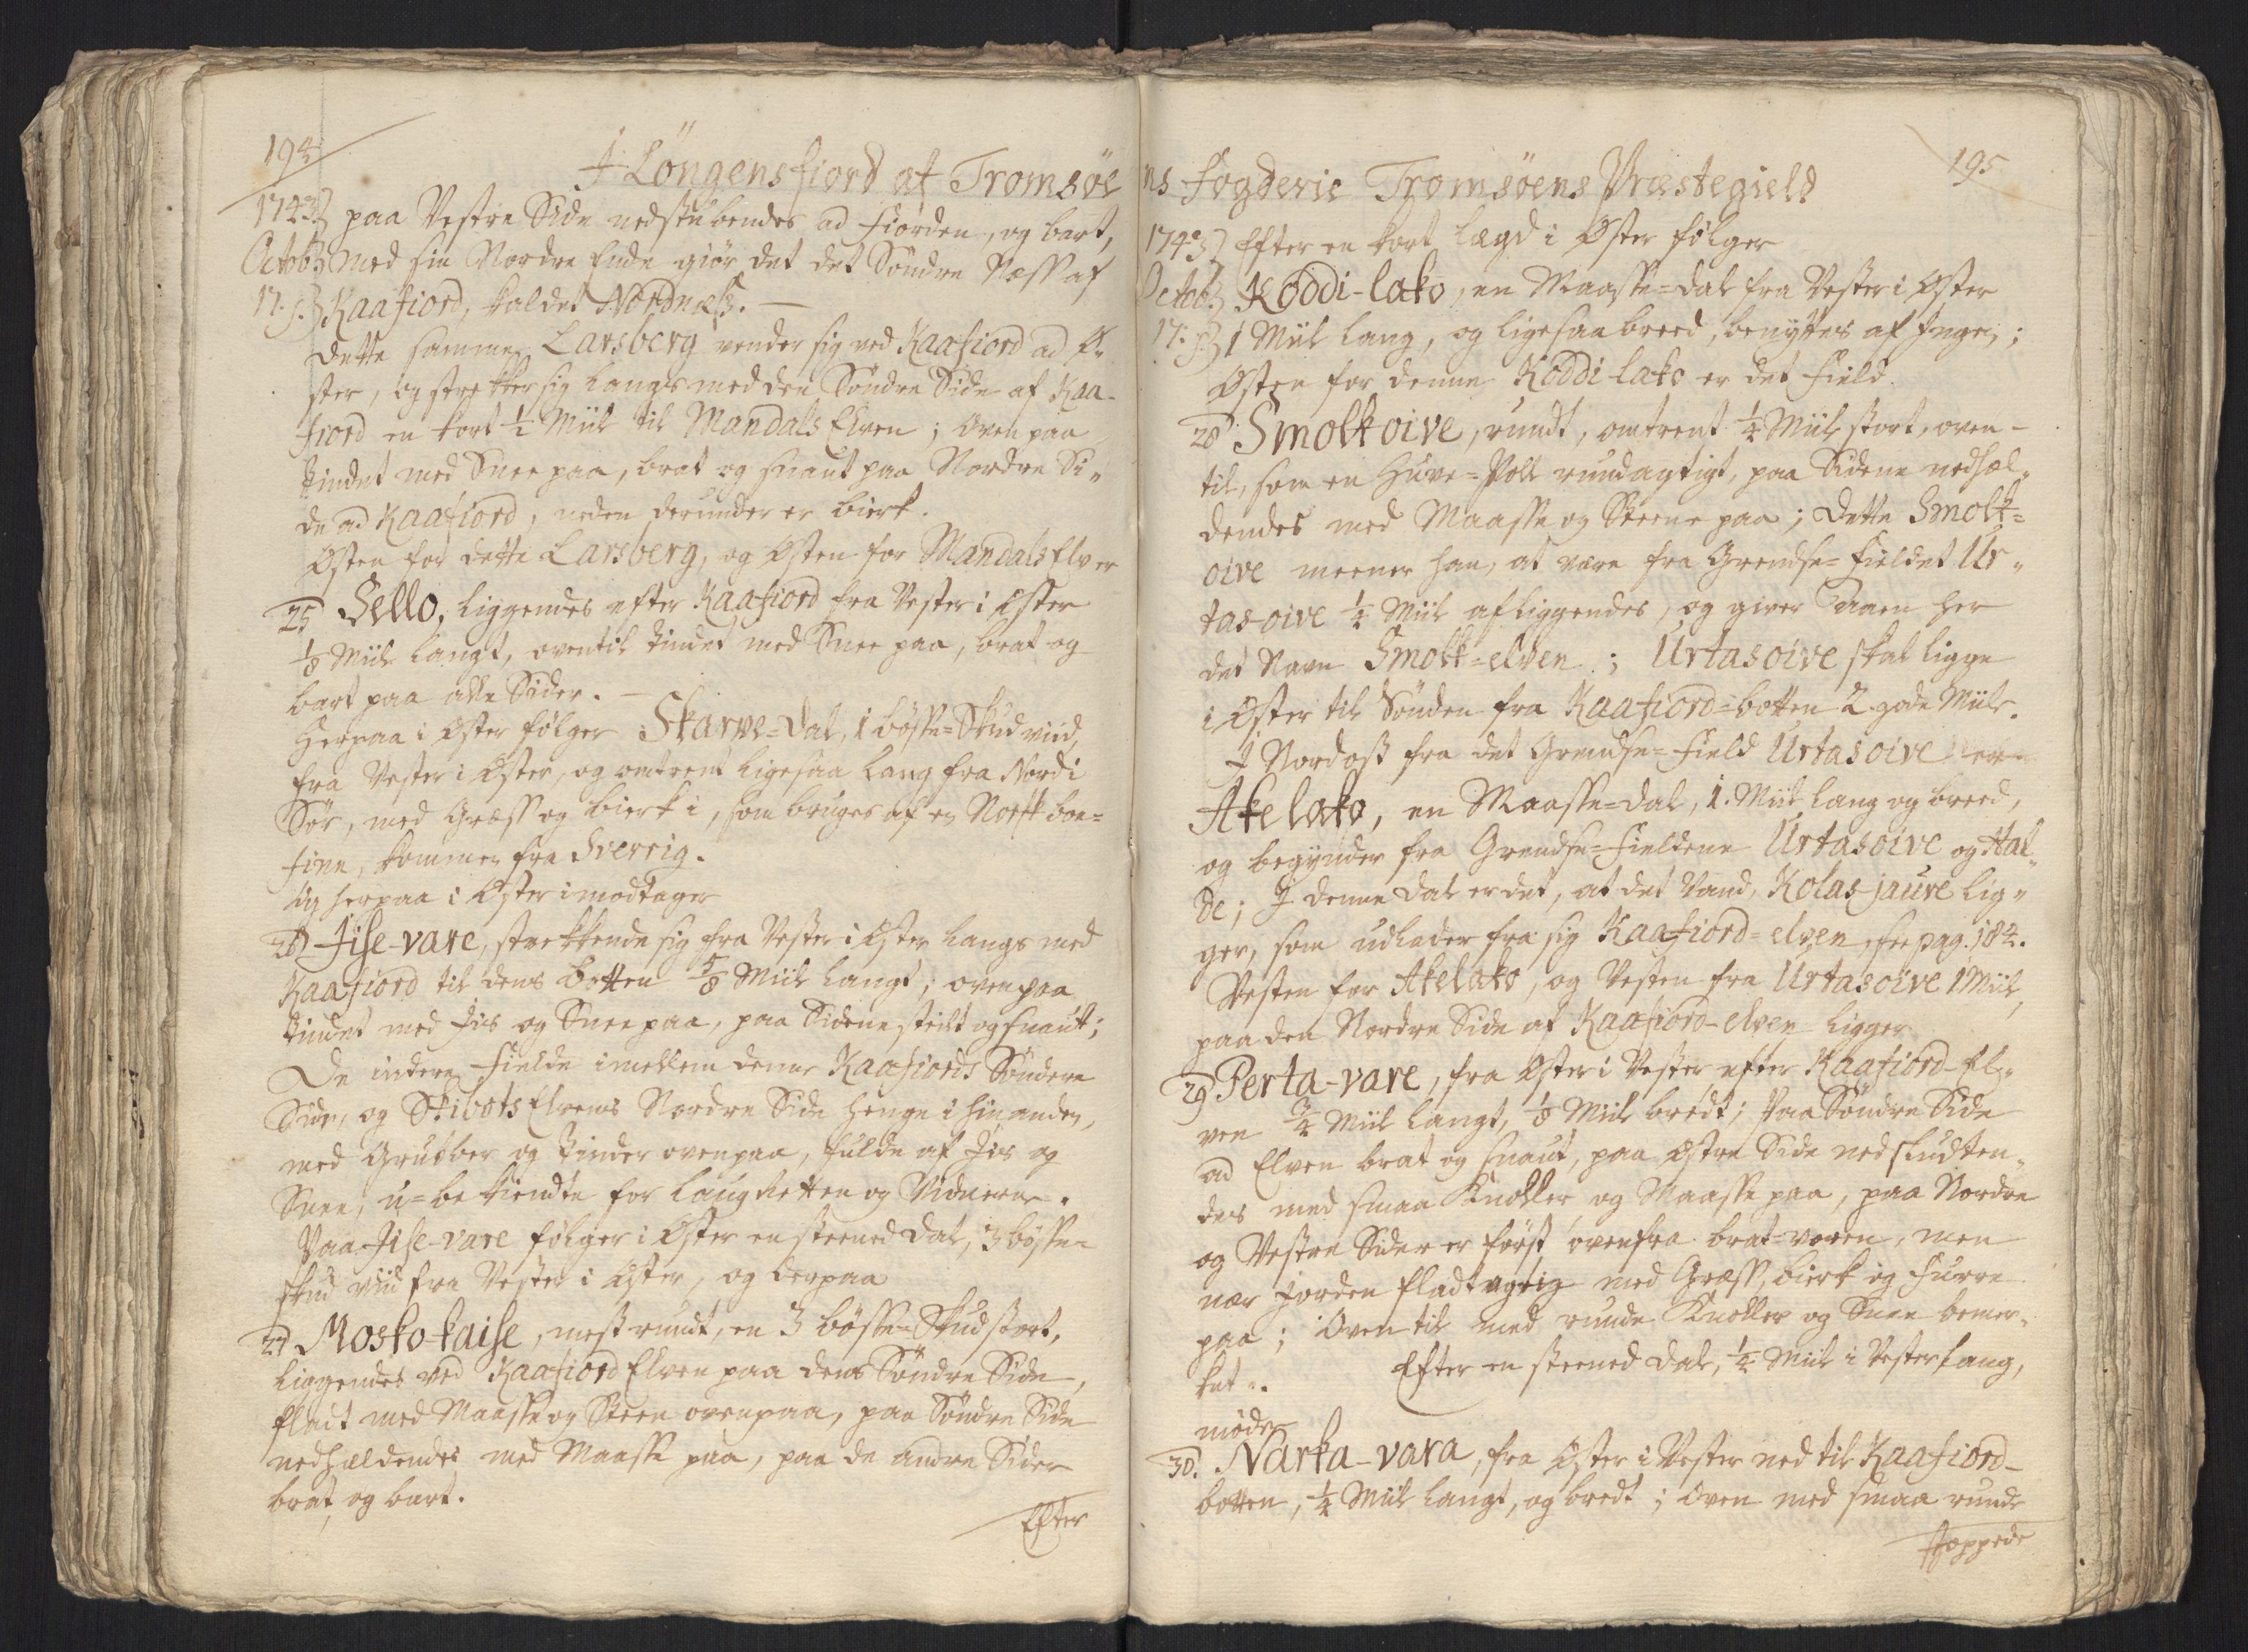 194
I Löngensfiord af Tromsöe
1743 paa Vestre Side nedstubendes ad Fiorden, og bart,
Octobr med sin Nordre Ende giör det det Söndre Næss af
17. Kaafiord, kaldet Nordnæss. —
Dette samme Larsberg vender sig ved Kaafiord ad Ö-
ster, og strekker sig langs med den Söndre Side af Kaa-
fiord en kort ½ Miil til Mandals Elven; oven paa
Tindet med Snee paa, brat og snaut paa Nordre Si-
de ad Kaafiord, neden derunder er Birk.
Östen for dette Larsberg, og Östen for Mandals Elv er
25 Sello, liggendes efter Kaafiord fra Vester i Öster
⅛ Miil langt, oventil tindet med Snee paa, brat og
bart paa alle Sider. —
Herpaa i Öster fölger Skarve-Dal, 1 bösse-Skud viid
fra Vester i Öster, og omtrent ligesaa lang fra Nord i
Sör, med Græss og birk i, som bruges af en Norsk boe-
finn, kommen fra Sverrig.
Og herpaa i Öster imodtager
26 Jise-vare, strekkende sig fra Vester i Öster langs med
Kaafiord til dens Botten ⅝ Miil langt; ovenpaa
tindet med Jis og Snee paa, paa Sidene steilt og snaut;
De indere Fielde imellem denne Kaafiords Söndere
Side, og Skibots Elvens Nordre Side henge i hinanden,
med Grubber og Tinder ovenpaa, fulde af Jis og
Snee, u-bekiendte for Laugretten og Vidnerne.
Paa Jise-vare fölger i Öster en steened Dal, 3 bösse-
skud viid fra Vester i Öster, og derpaa
27 Mosko-kaise, mest rundt, en 3 bösse-Skud stort,
liggendes ved Kaafiord Elven paa dens Söndre Side,
fladt med Maasse og Steen ovenpaa, paa Söndre Side
nedhældendes med Maasse paa, paa de andre Sider
brat og bart.
Efter
195
ns Fogderie Tromsöens Præstegield
1743 Efter en kort Lægd i Öster fölger
Octobr Koddi-lako, en Maasse-Dal fra Vester i Öster
17. 1 Miil lang, og ligesaa breed, benyttes af Ingen;
Östen for denne Koddi lako er det Field
28 Smolkoive, rundt, omtrent ¼ Miil stort, oven-
til, som en Huve-Poll rundagtigt, paa Sidene nedhæl-
dendes med Maasse og Steene paa; Dette Smolk-
oive meener han, at være fra Grendse-Fieldet Ur-
tas-oive ¼ Miil afliggendes, og giver Aaen her
det Navn Smolk-elven; Urtasoive skal ligge
i Öster til Sönden fra Kaafiord-botten 2 gode Miile.
I Nordost fra det Grendse-Field Urtasoive er
Akelako, en Maasse-Dal, 1. Miil lang og breed,
og begynder fra Grendse-Fieldene Urtasoive og Hal-
de; I denne Dal er det, at det Vand, Kolas-jaure lig-
ger, som udlader fra sig Kaafiord-elven, see pag. 184.
Vesten for Akelako, og Vesten fra Urtasoive 1 Miil,
paa den Nordre Side af Kaafiord-elven ligger
29 Perta-vare, fra Öster i Vester efter Kaafiord-El-
ven ¾ Miil langt, ⅛ Miil bredt; Paa Söndre Side
ad Elven brat og snaut, paa Östre Side nedskudten-
des med smaa Knoller og Maasse paa, paa Nordre
og Vestre Sider er först ovenfra brat-voren, men
nær Jorden fladtagtig med Græss, birk og Furre
paa; Oventil med runde Knoller og Snee bemer-
ket. Efter en steened Dal, ¼ Miil i Vester lang,
möder
30. Narka-vara, fra Öster i Vester ned til Kaafiord-
botten, ¼ Miil langt, og bredt; Oven med smaa runde
Toppede